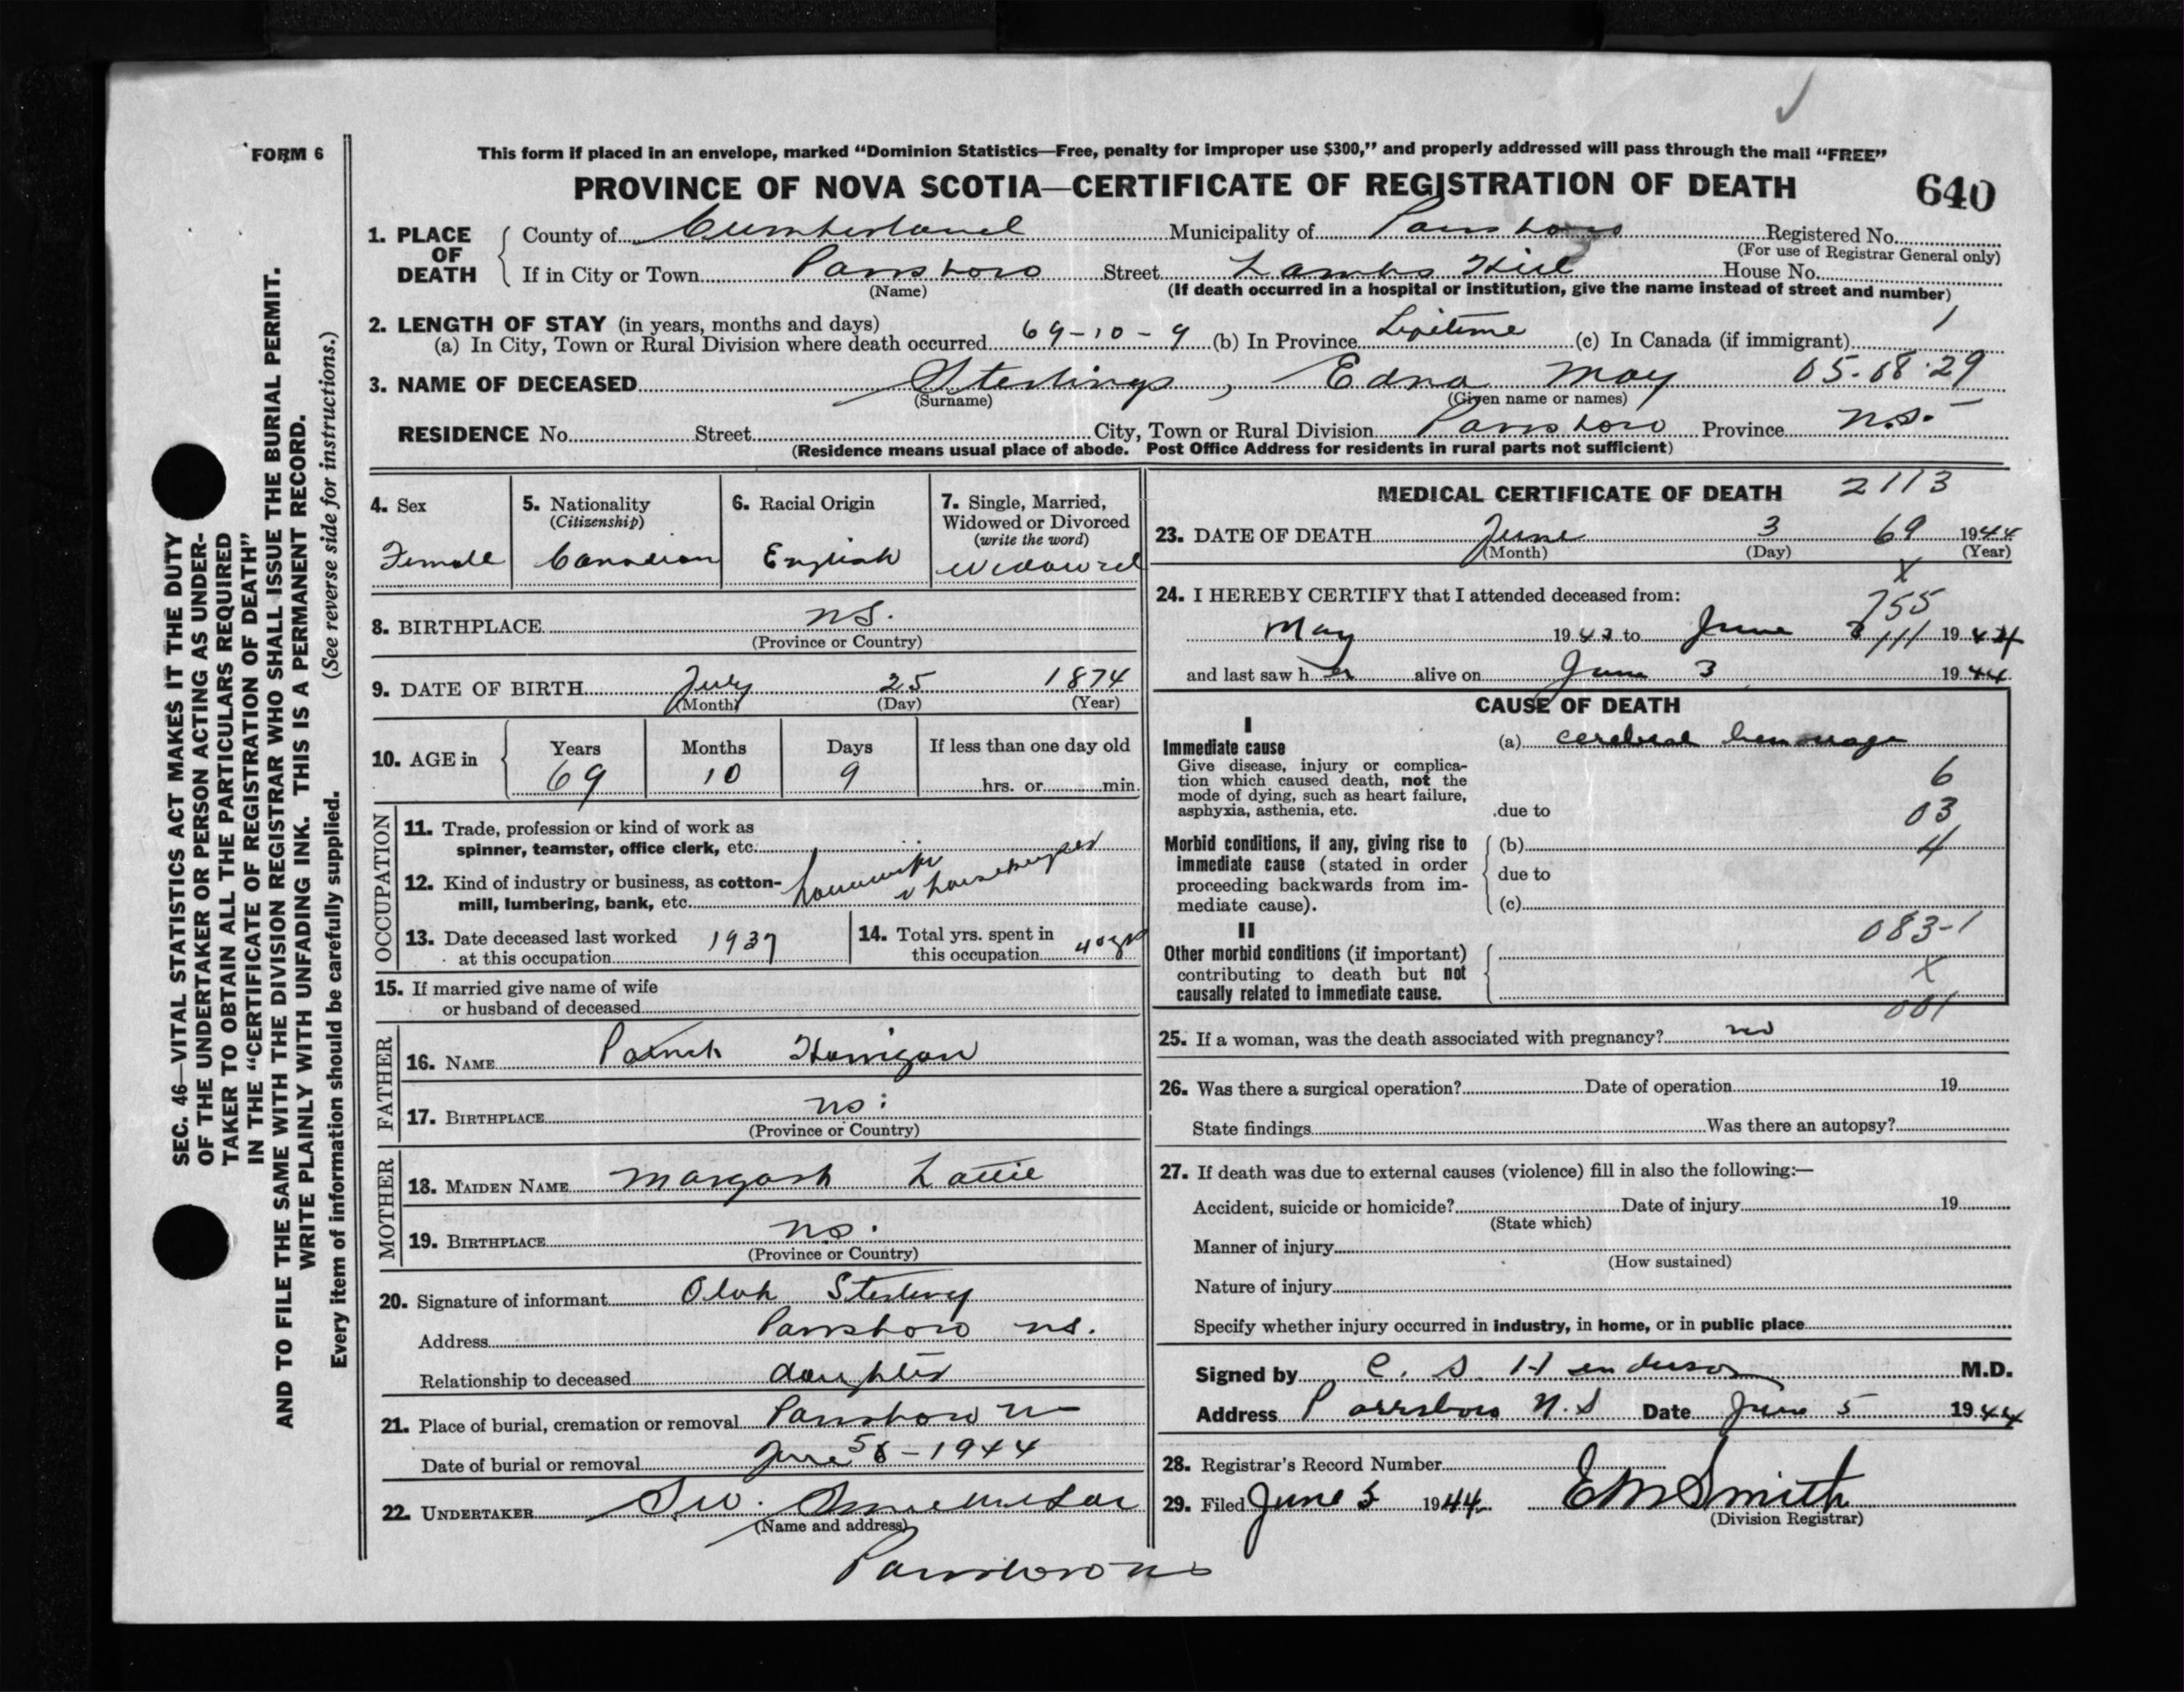 FORM 6
This form if placed in an envelope, marked “Dominion Statistics—Free, penalty for improper use $300,” and properly addressed will pass through the mail “FREE”
PROVINCE OF NOVA SCOTIA—CERTIFICATE OF REGISTRATION OF DEATH 640
1. PLACE OF DEATH
County of Cumberland Municipality of Parrsboro Registered No.
(For use of Registrar General only)
If in City or Town Parrsboro Street Lambs Hill House No.
(Name) (If death occurred in a hospital or institution, give the name instead of street and number)
2. LENGTH OF STAY (in years, months and days) 1
(a) In City, Town or Rural Division where death occurred 69-10-9 (b) In Province Lifetime (c) In Canada (if immigrant)
3. NAME OF DECEASED Sterlings, Edna May 05-08-29
(Surname) (Given name or names)
RESIDENCE No. Street City, Town or Rural Division Parrsboro Province N.S.
(Residence means usual place of abode. Post Office Address for residents in rural parts not sufficient)
4. Sex
Female
5. Nationality
(Citizenship)
Canadian
6. Racial Origin
English
7. Single, Married,
Widowed or Divorced
(write the word)
Widowed
8. BIRTHPLACE NS.
(Province or Country)
9. DATE OF BIRTH July 25 1874
(Month) (Day) (Year)
10. AGE in Years Months Days If less than one day old
69 10 9 hrs. or min.
OCCUPATION
11. Trade, profession or kind of work as
spinner, teamster, office clerk, etc.
12. Kind of industry or business, as cotton-
mill, lumbering, bank, etc. housewife & housekeeper
13. Date deceased last worked
at this occupation 1937
14. Total yrs. spent in
this occupation 40 yr
15. If married give name of wife
or husband of deceased
FATHER
16. NAME Patrick Hannigan
17. BIRTHPLACE NS.
(Province or Country)
MOTHER
18. MAIDEN NAME Margaret Lattie
19. BIRTHPLACE NS.
(Province or Country)
20. Signature of informant Sterling
Address Parrsboro NS.
Relationship to deceased daughter
21. Place of burial, cremation or removal Parrsboro
Date of burial or removal June 5 - 1944
22. UNDERTAKER
(Name and address)
Parrsboro NS
MEDICAL CERTIFICATE OF DEATH 2113
23. DATE OF DEATH June 3 69 1944
(Month) (Day) (Year)
X
24. I HEREBY CERTIFY that I attended deceased from: 755
May 1943 to June 3 111 1944
and last saw her alive on June 3 1944
CAUSE OF DEATH
I
Immediate cause
Give disease, injury or complica-
tion which caused death, not the
mode of dying, such as heart failure,
asphyxia, asthenia, etc.
(a) cerebral hemorrage
6
due to 03
Morbid conditions, if any, giving rise to
immediate cause (stated in order
proceeding backwards from im-
mediate cause).
(b) 4
due to
(c)
083-1
II
Other morbid conditions (if important)
contributing to death but not
causally related to immediate cause.
X
001
25. If a woman, was the death associated with pregnancy? no
26. Was there a surgical operation? Date of operation 19
State findings Was there an autopsy?
27. If death was due to external causes (violence) fill in also the following:—
Accident, suicide or homicide? Date of injury 19
(State which)
Manner of injury
(How sustained)
Nature of injury
Specify whether injury occurred in industry, in home, or in public place
Signed by C. S. Henderson M.D.
Address Parrsboro N.S Date June 5 1944
28. Registrar's Record Number
29. Filed June 5 1944 EM Smith
(Division Registrar)
SEC. 46—VITAL STATISTICS ACT MAKES IT THE DUTY
OF THE UNDERTAKER OR PERSON ACTING AS UNDER-
TAKER TO OBTAIN ALL THE PARTICULARS REQUIRED
IN THE “CERTIFICATE OF REGISTRATION OF DEATH”
AND TO FILE THE SAME WITH THE DIVISION REGISTRAR WHO SHALL ISSUE THE BURIAL PERMIT.
WRITE PLAINLY WITH UNFADING INK. THIS IS A PERMANENT RECORD.
Every item of information should be carefully supplied. (See reverse side for instructions.)